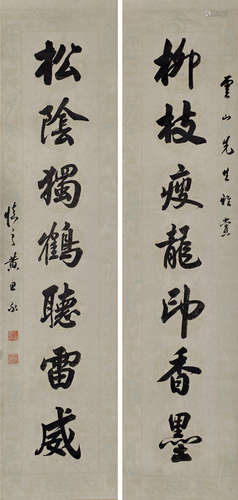 雲山先生雅賞
柳枝瘦龍印香墨
松陰獨鶴聽雷威
慎之黃思永